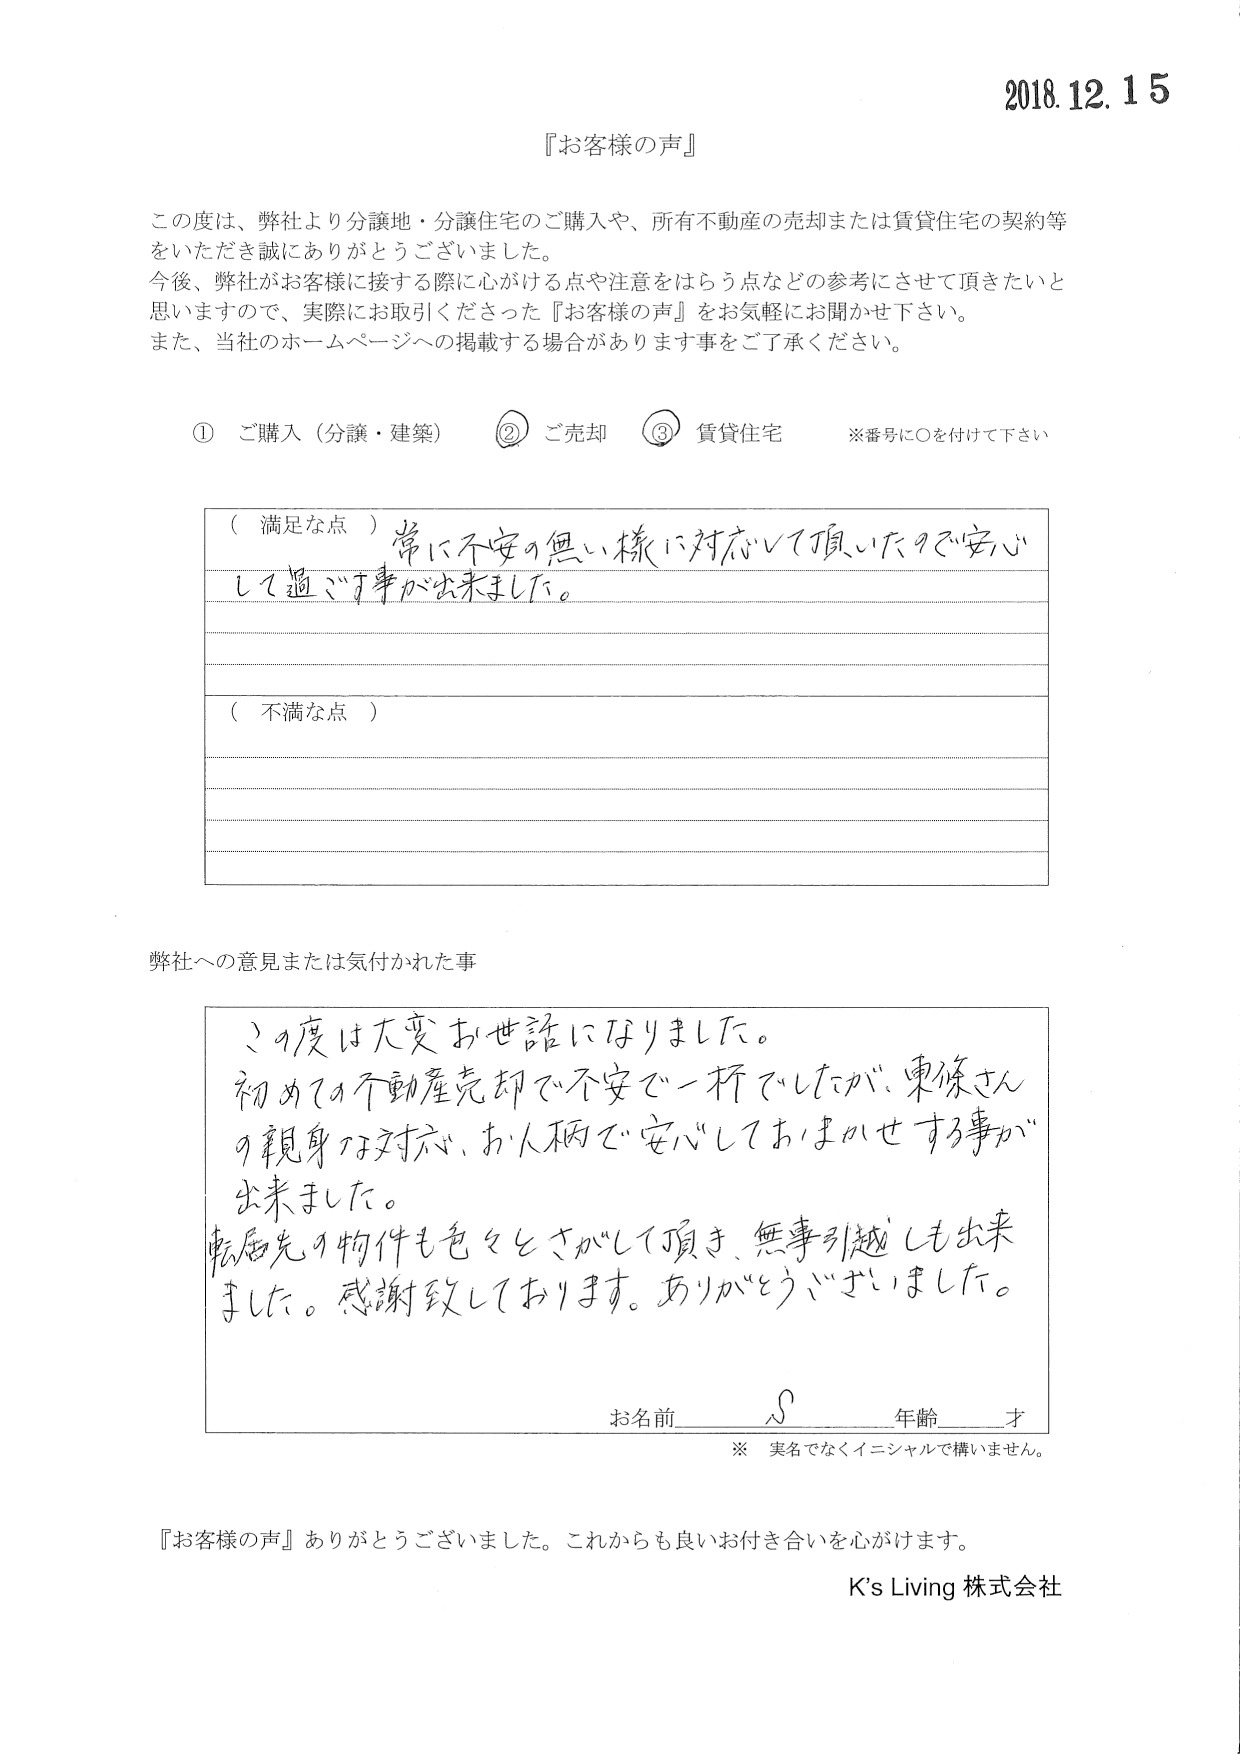 2018.12.15
『お客様の声』
この度は、弊社より分譲地・分譲住宅のご購入や、所有不動産の売却または賃貸住宅の契約等
をいただき誠にありがとうございました。
今後、弊社がお客様に接する際に心がける点や注意をはらう点などの参考にさせて頂きたいと
思いますので、実際にお取引くださった『お客様の声』をお気軽にお聞かせ下さい。
また、当社のホームページへの掲載する場合があります事をご了承ください。
① ご購入（分譲・建築） ② ご売却 ③ 賃貸住宅 ※番号に○を付けて下さい
（ 満足な点 ） 常に不安の無い様に対応して頂いたので安心
して過ごす事が出来ました。
（ 不満な点 ）
弊社への意見または気付かれた事
この度は大変お世話になりました。
初めての不動産売却で不安で一杯でしたが、東條さん
の親身な対応、お人柄で安心しておまかせする事が
出来ました。
転居先の物件も色々とさがして頂き、無事引越しも出来
ました。感謝致しております。ありがとうございました。
お名前 S 年齢 才
※ 実名でなくイニシャルで構いません。
『お客様の声』ありがとうございました。これからも良いお付き合いを心がけます。
K's Living 株式会社